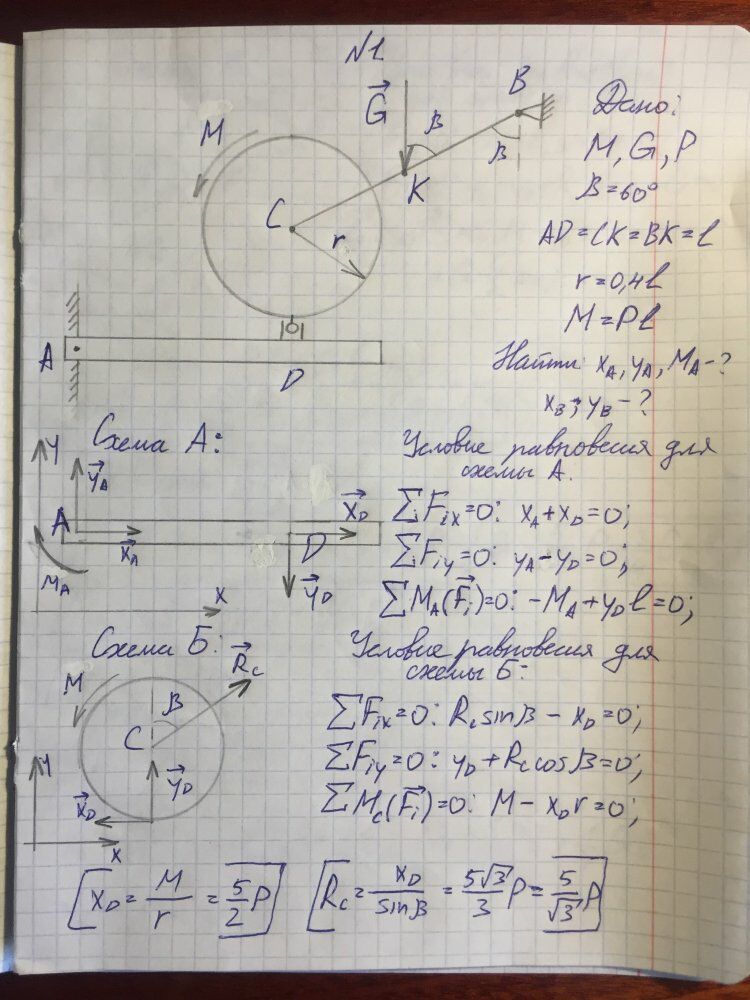 №1
B
G
β
β
M
K
C
r
A
D
Дано:
M, G, P
β=60°
AD=CK=BK=l
r=0,4l
M=Pl
Найти: x_A, y_A, M_A-?
x_B; y_B-?
Схема А:
y
y_A
A
x_A
x_D
D
M_A
y_D
x
Условие равновесия для
схемы А.
∑F_ix=0: x_A+x_D=0;
∑F_iy=0: y_A-y_D=0;
∑M_A(F_i)=0: -M_A+y_D l=0;
Схема Б:
R_C
M
β
C
y
y_D
x_D
x
Условие равновесия для
схемы Б:
∑F_ix=0: R_C sinβ - x_D=0;
∑F_iy=0: y_D+R_C cosβ=0;
∑M_C(F_i)=0: M - x_D r=0;
[x_D = M/r = 5/2 P] [R_C = x_D/sinβ = 5√3/3 P = 5/√3 P]